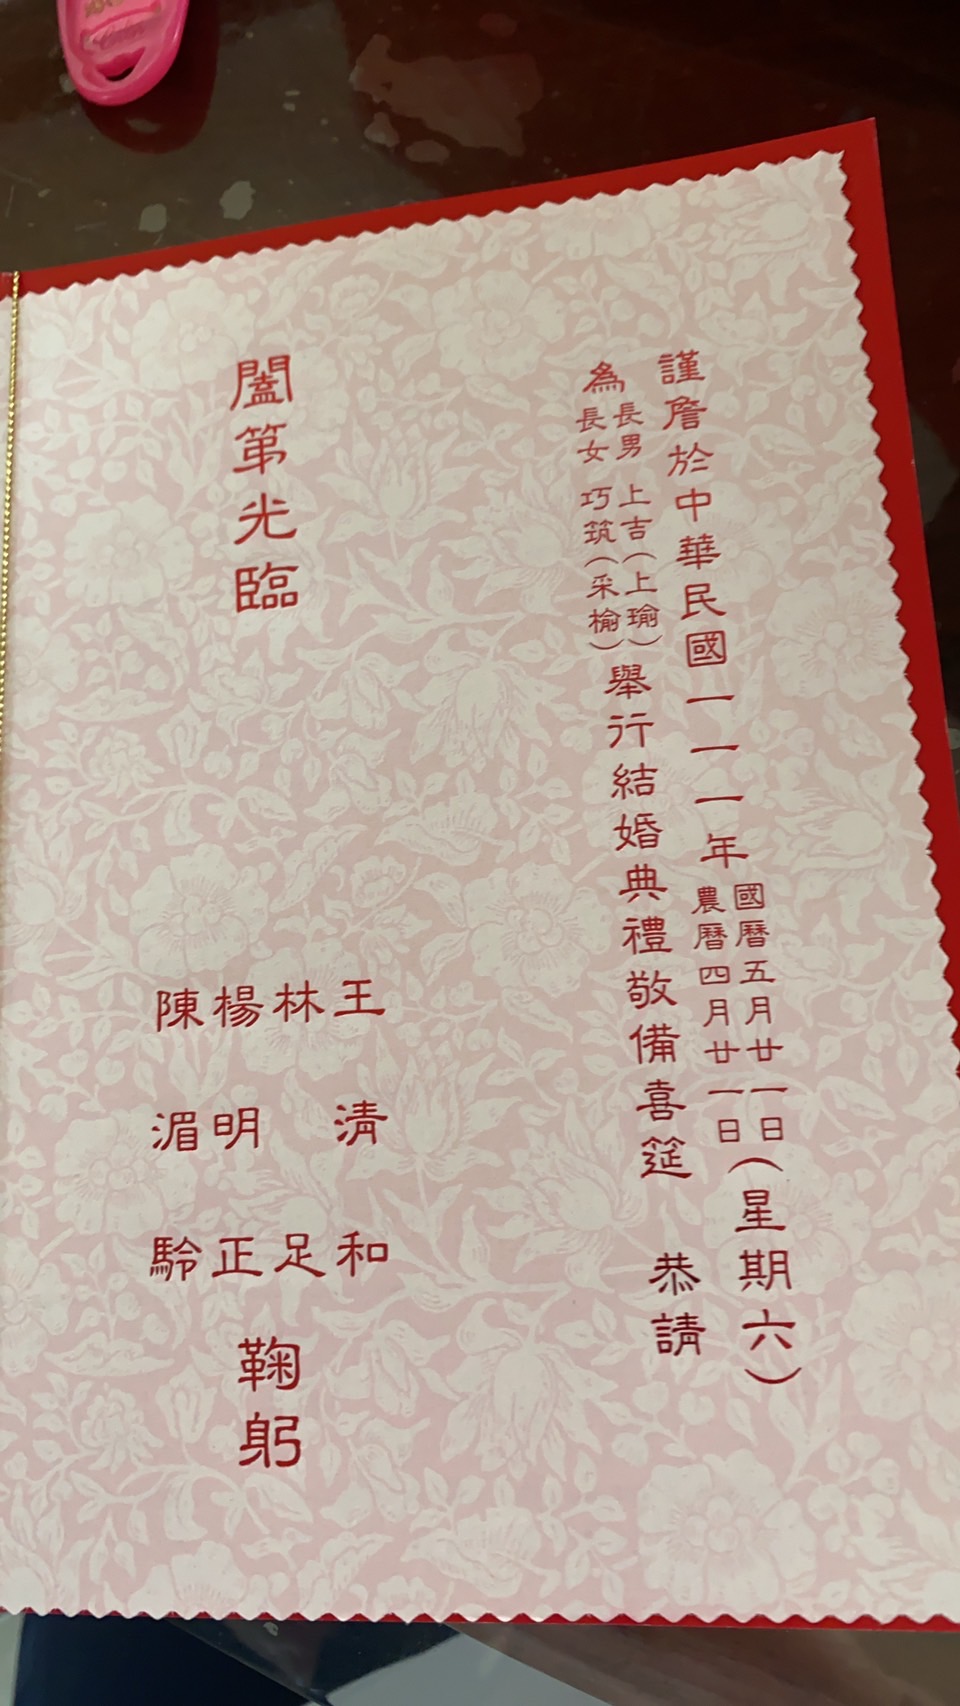 謹詹於中華民國一一一年 國曆五月廿一日 農曆四月廿一日(星期六)
為 長男 上吉(上瑜) 長女 巧筑(采榆)舉行結婚典禮敬備喜筵 恭請
闔第光臨
王清和
林足
楊明正
陳湄駖
鞠躬